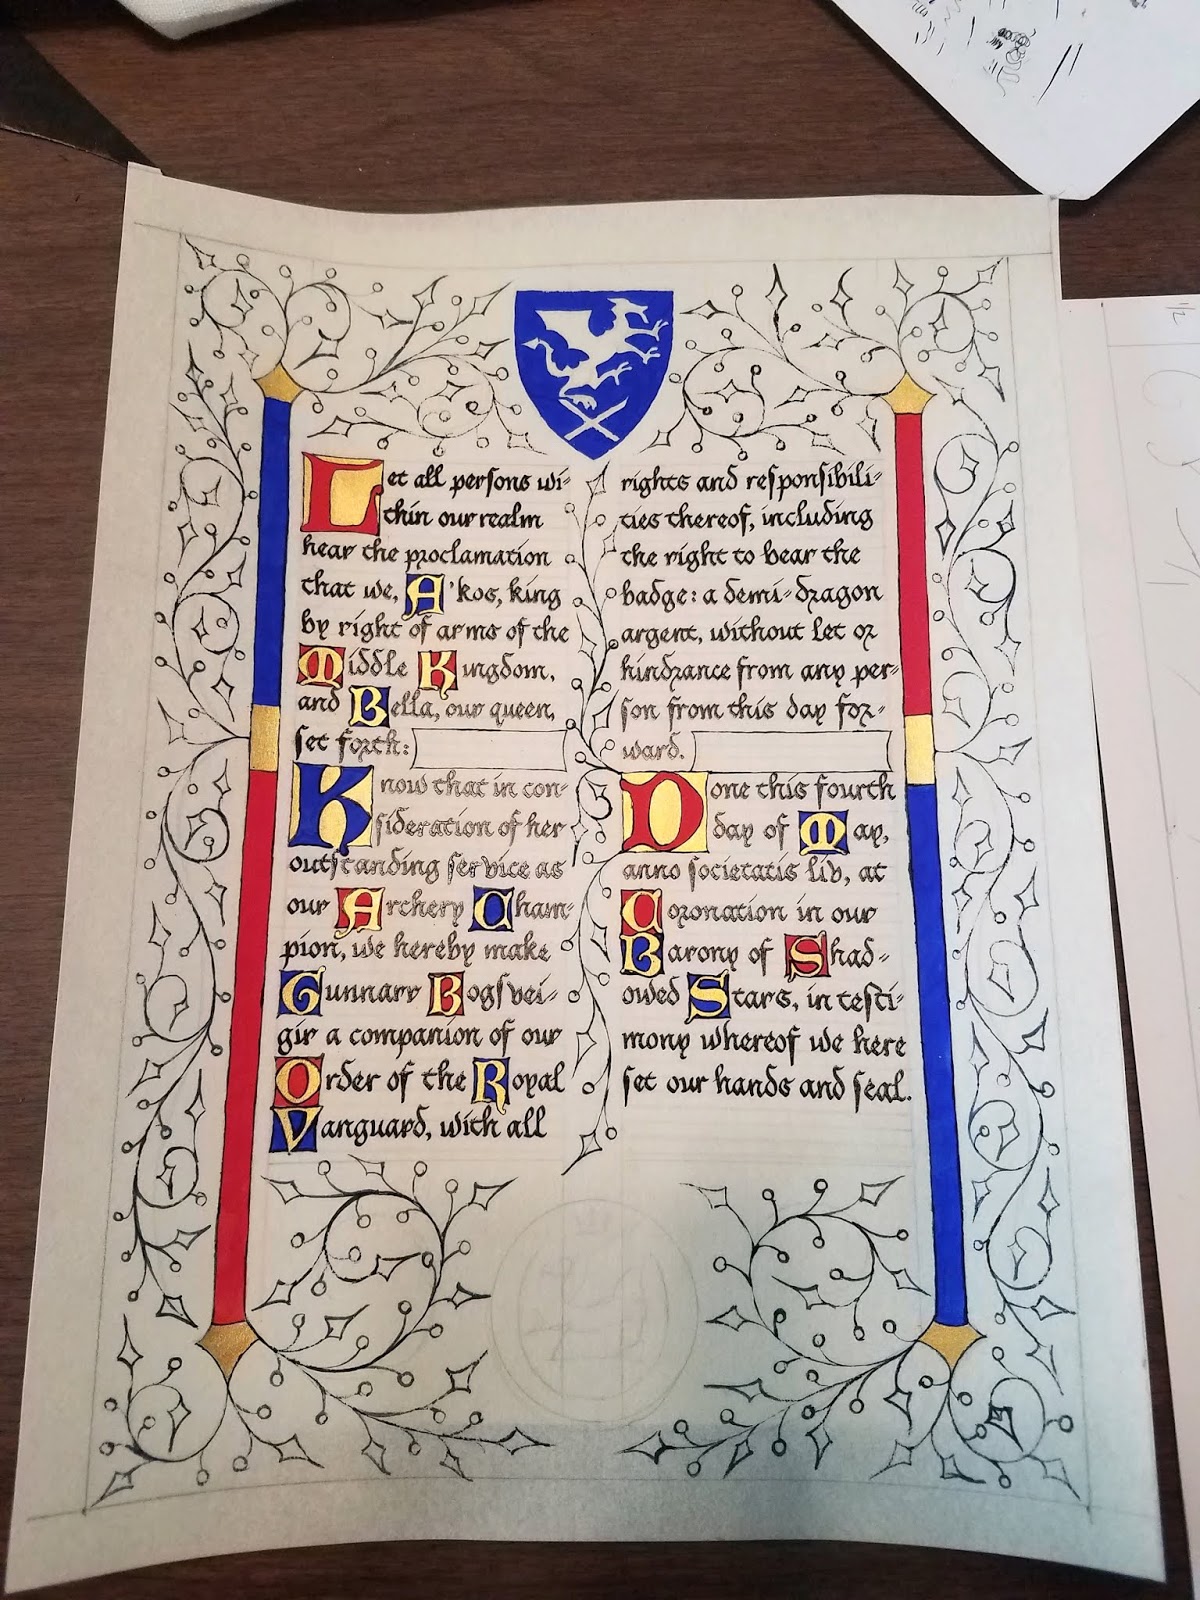 Let all persons wi-
thin our realm
hear the proclamation
that we, A'kos, king
by right of arms of the
Middle Kingdom,
and Bella, our queen,
set forth:
Know that in con-
sideration of her
outstanding service as
our Archery Cham-
pion, we hereby make
Gunnarr Bogsvei-
gir a companion of our
Order of the Royal
Vanguard, with all
rights and responsibili-
ties thereof, including
the right to bear the
badge: a demi-dragon
argent, without let or
hindrance from any per-
son from this day for-
ward.
Done this fourth
day of May,
anno societatis liv, at
Coronation in our
Barony of Shad-
owed Stars, in testi-
mony whereof we here
set our hands and seal.
1/2